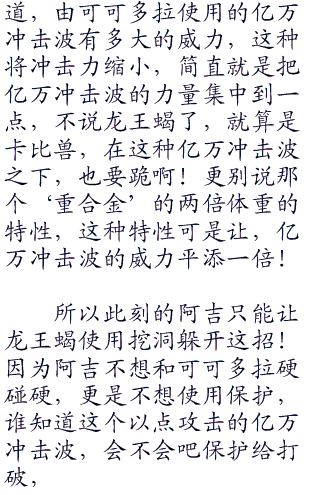 道，由可可多拉使用的亿万
冲击波有多大的威力，这种
将冲击力缩小，简直就是把
亿万冲击波的力量集中到一
点，不说龙王蝎了，就算是
卡比兽，在这种亿万冲击波
之下，也要跪啊！更别说那
个‘重合金’的两倍体重的
特性，这种特性可是让，亿
万冲击波的威力平添一倍！
所以此刻的阿吉只能让
龙王蝎使用挖洞躲开这招！
因为阿吉不想和可可多拉硬
碰硬，更是不想使用保护，
谁知道这个以点攻击的亿万
冲击波，会不会吧保护给打
破，